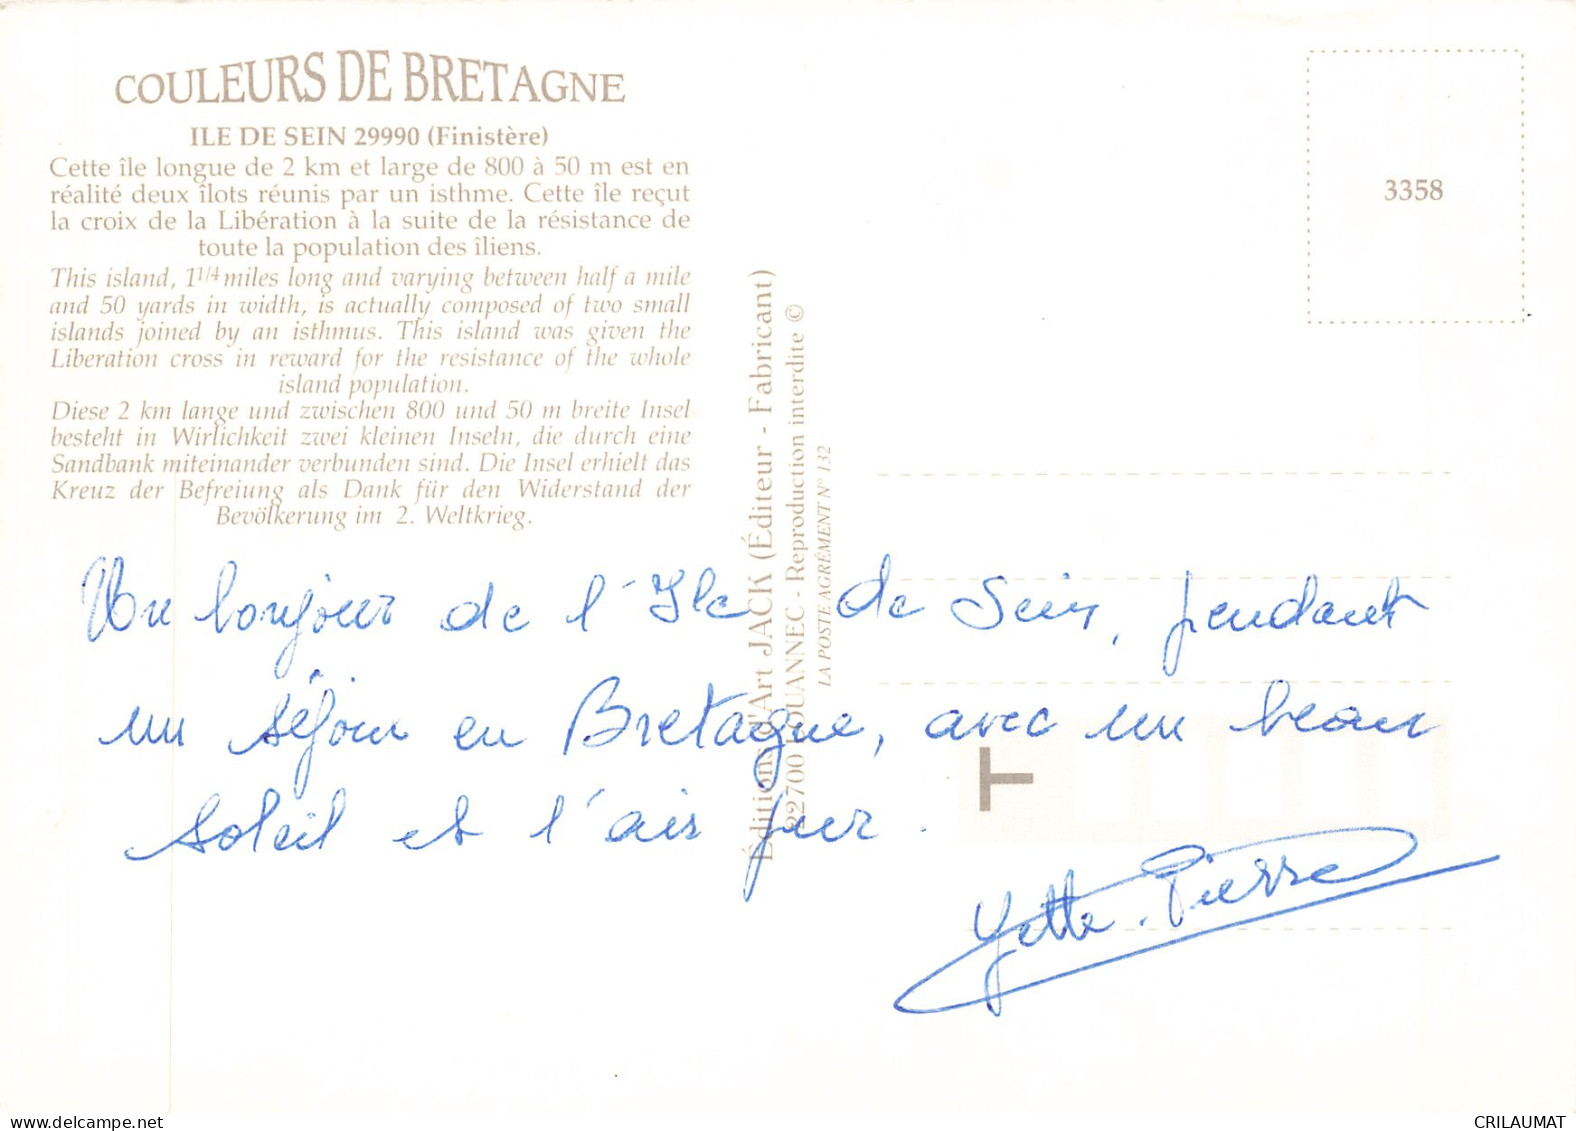 COULEURS DE BRETAGNE
ILE DE SEIN 29990 (Finistère)
Cette île longue de 2 km et large de 800 à 50 m est en
réalité deux îlots réunis par un isthme. Cette île reçut
la croix de la Libération à la suite de la résistance de
toute la population des îliens.
This island, 1 1/4 miles long and varying between half a mile
and 50 yards in width, is actually composed of two small
islands joined by an isthmus. This island was given the
Liberation cross in reward for the resistance of the whole
island population.
Diese 2 km lange und zwischen 800 und 50 m breite Insel
besteht in Wirlichkeit zwei kleinen Inseln, die durch eine
Sandbank miteinander verbunden sind. Die Insel erhielt das
Kreuz der Befreiung als Dank für den Widerstand der
Bevölkerung im 2. Weltkrieg.
3358
Éditions d'Art JACK (Éditeur - Fabricant)
22700 LOUANNEC - Reproduction interdite ©
LA POSTE AGRÉMENT N° 132
Un bonjour de l'Ile de Sein, pendant
un séjour en Bretagne, avec un beau
soleil et l'air pur.
T
Yette. Pierre
CRILAUMAT